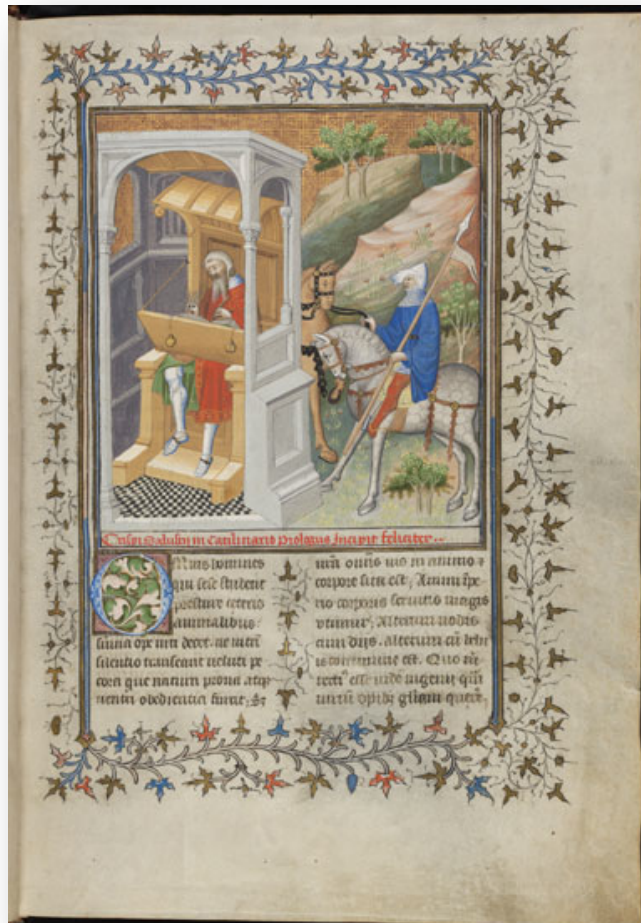 Crispi Salustii in Catilinario Prologus Incipit feliciter
OMnis homines
qui sese student
prestare ceteris
animalibus:
suma ope niti decet. ne uitam
silentio transeant ueluti pe
cora que natura prona atqȝ
uentri obedientia finxit. Sȝ
nr̄a om̄is uis in animo &
corpore sita est. Animi īpe
rio corporis seruitio magis
utimur. Alterum nobis
cum diis. alterum cū belu
is commune est. Quo
esse ingenii
opibȝ gl̄iam querer̄